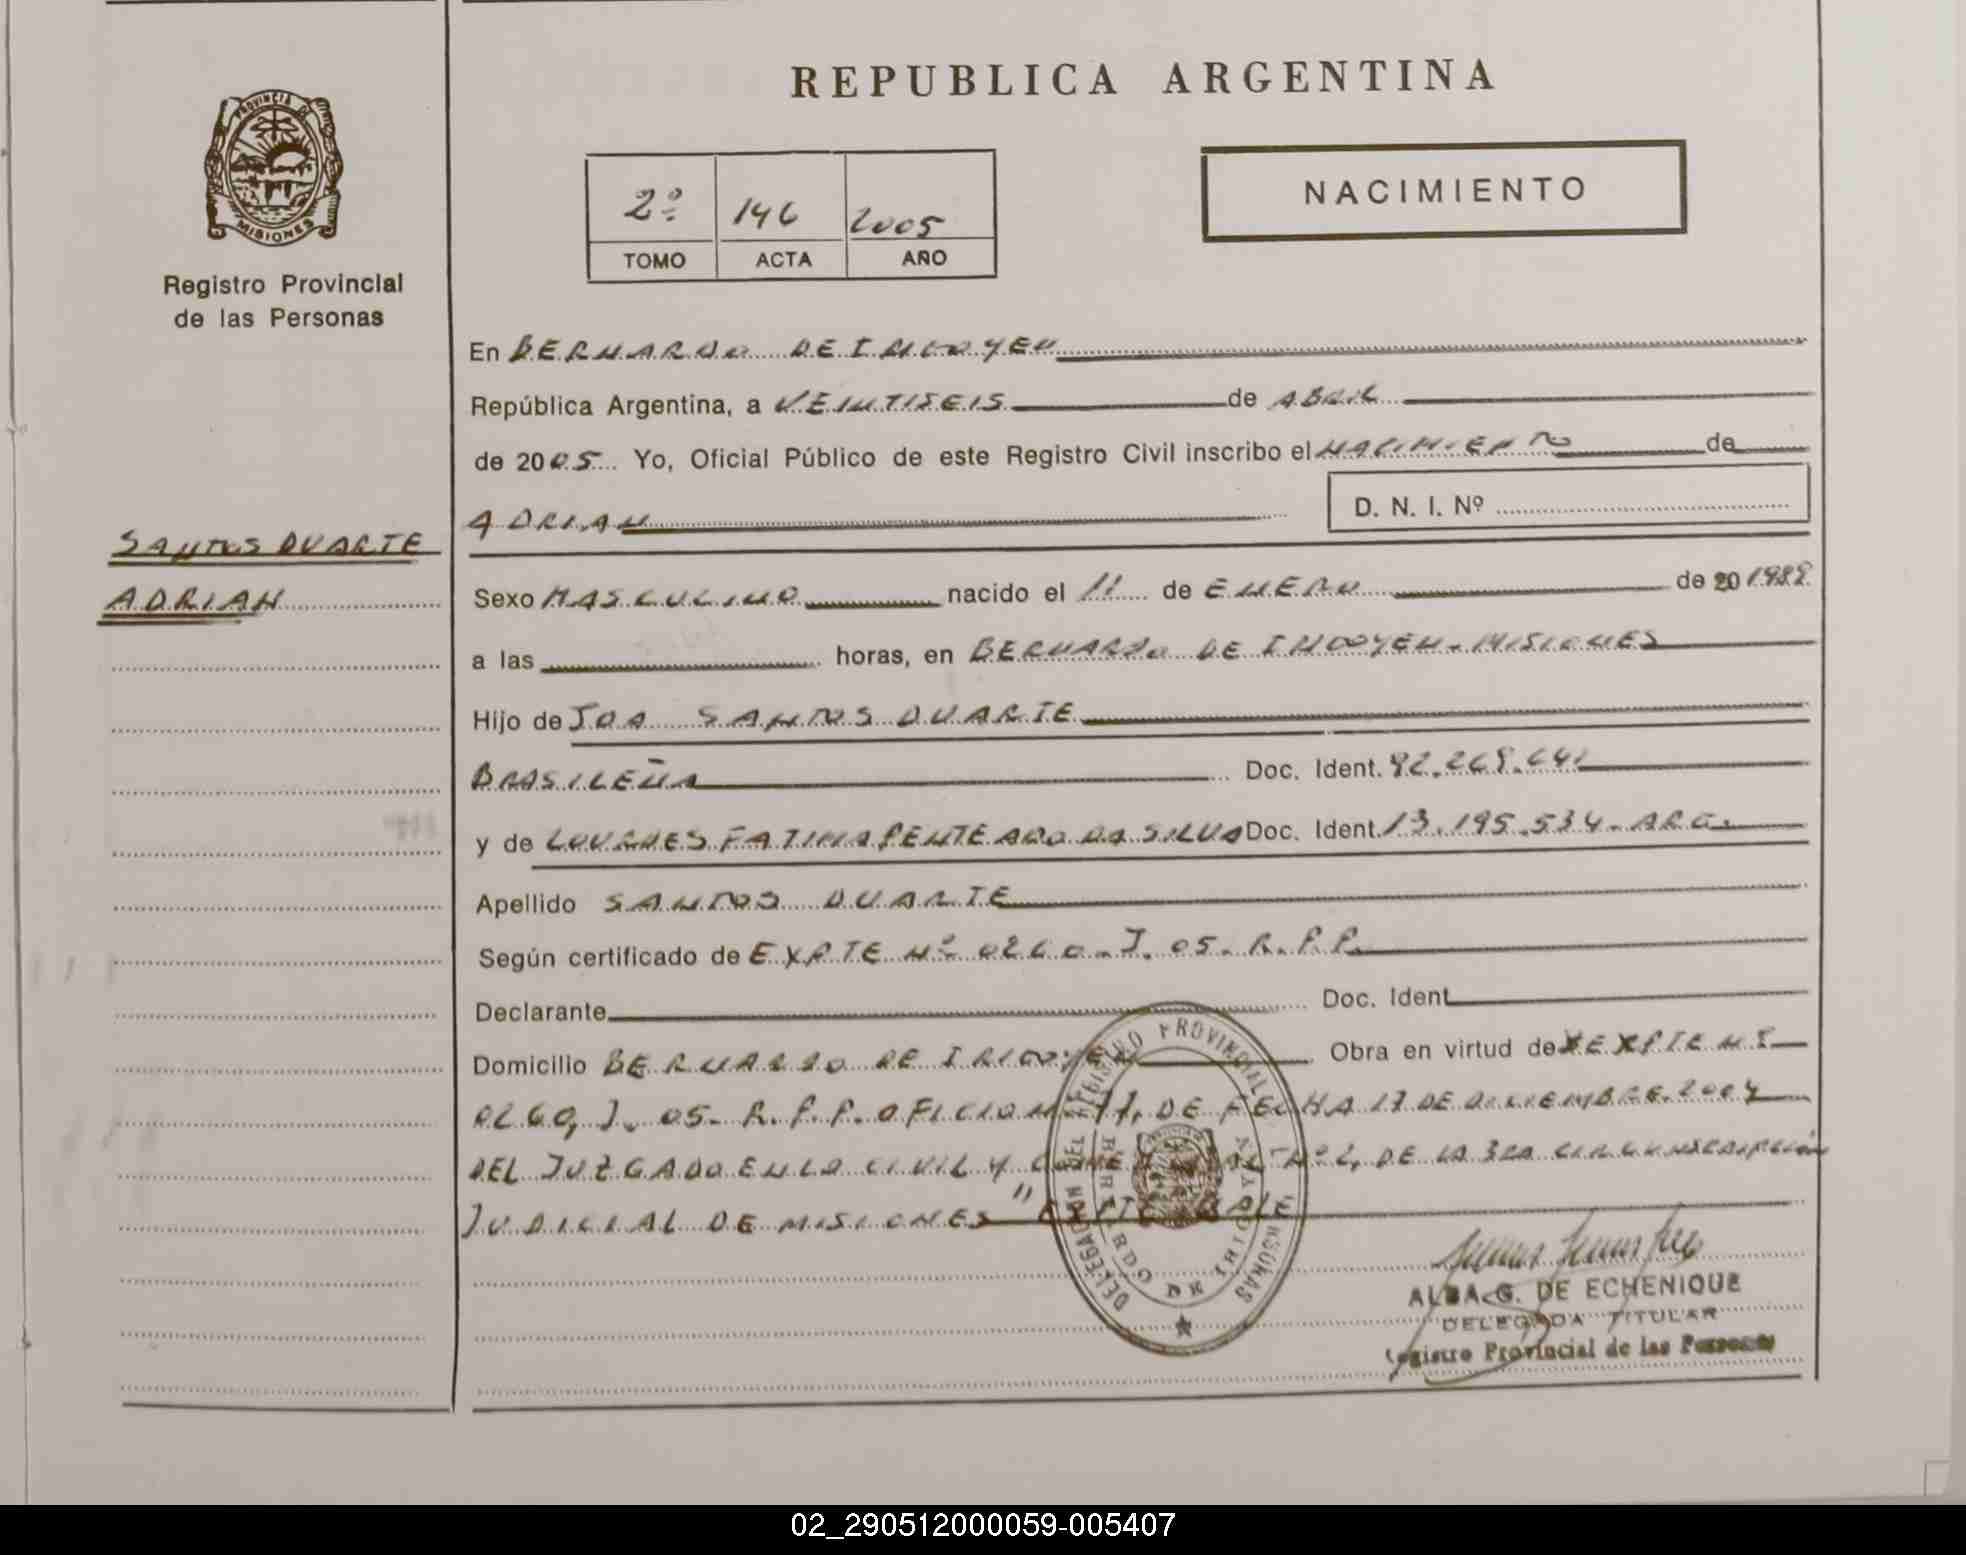 REPUBLICA ARGENTINA
PROVINCIA DE
MISIONES
Registro Provincial
de las Personas
NACIMIENTO
2º 146 2005
TOMO ACTA AÑO
En BERNARDO DE IRIGOYEN
República Argentina, a VEINTISEIS de ABRIL
de 2005 Yo, Oficial Público de este Registro Civil inscribo el NACIMIENTO de
ADRIAN
D. N. I. Nº
SANTOS DUARTE
ADRIAN
Sexo MASCULINO nacido el 11 de ENERO de 20
a las horas, en BERNARDO DE IRIGOYEN - MISIONES
Hijo de JOA SANTOS DUARTE
BRASILEÑA Doc. Ident. 92.269.641
y de LOURDES FATIMA PENTEADO DA SILVA Doc. Ident 13.195.534 - ARG.
Apellido SANTOS DUARTE
Según certificado de EXPTE Nº 0260 - J. 05 - R.P.P.
Declarante Doc. Ident
Domicilio BERNARDO DE IRIGOYEN Obra en virtud de EXPTE Nº
0260, J. 05 - R.P.P. OFICIO DE FECHA 17 DE DICIEMBRE 2004
DEL JUZGADO EN LO CIVIL Y Nº 2, DE LA 3RA CIRCUNSCRIPCIÓN
JUDICIAL DE MISIONES "EXPTE VALE
DELEGACION DEL REGISTRO PROVINCIAL PERSONAS
BERNARDO DE IRIGOYEN
ALBA G. DE ECHENIQUE
DELEGADA TITULAR
Registro Provincial de las Personas
02_290512000059-005407